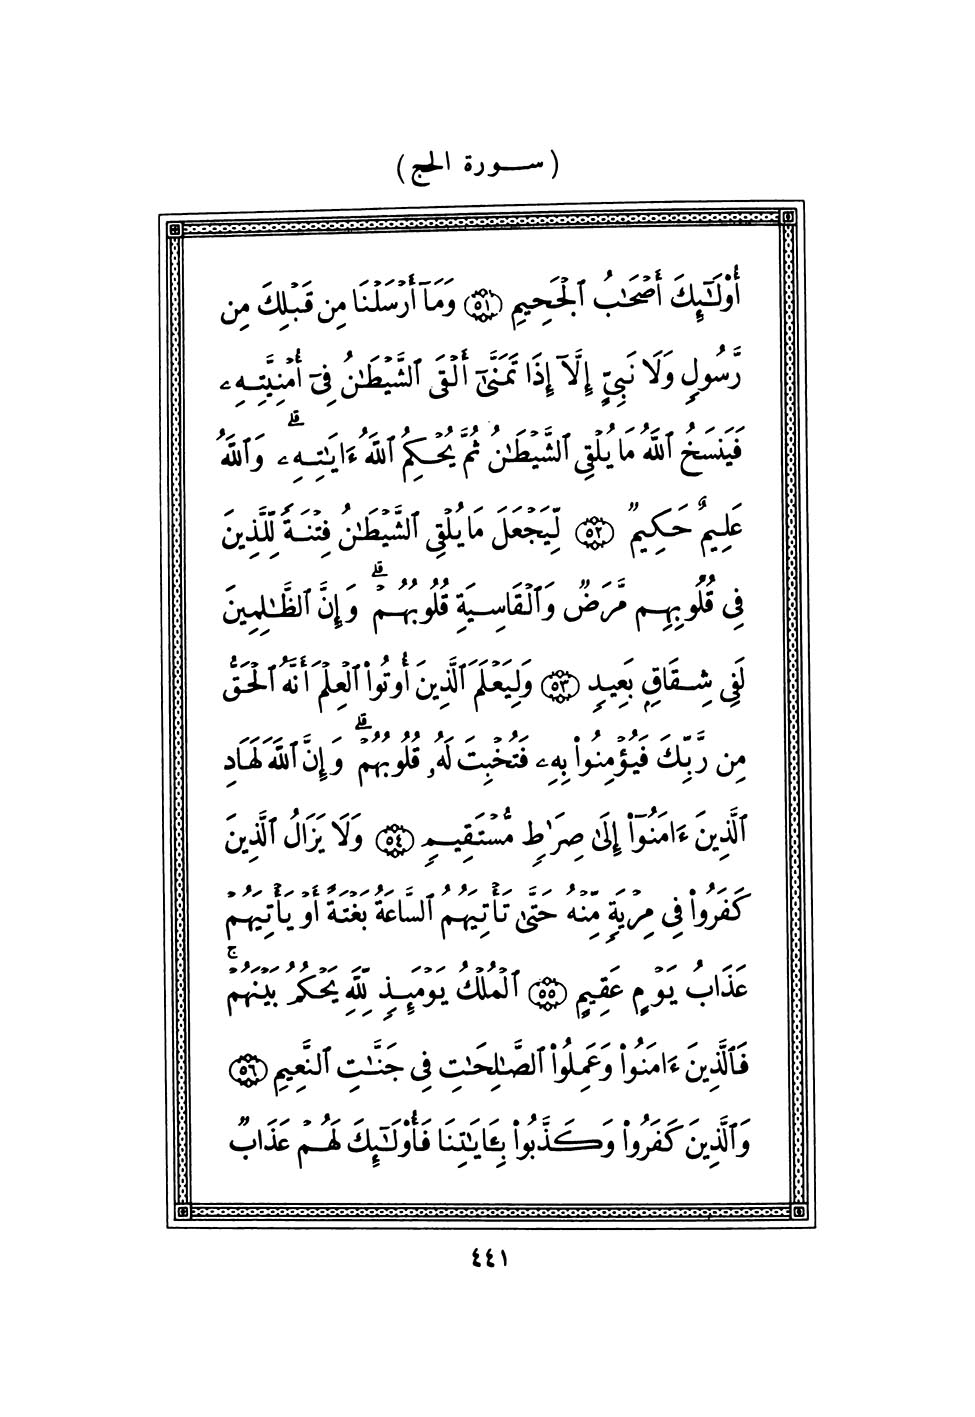 (سـورة الحج)
أُوْلَٰٓئِكَ أَصْحَٰبُ ٱلْجَحِيمِ ۝٥١ وَمَآ أَرْسَلْنَا مِن قَبْلِكَ مِن
رَّسُولٍ وَلَا نَبِيٍّ إِلَّآ إِذَا تَمَنَّىٰٓ أَلْقَى ٱلشَّيْطَٰنُ فِىٓ أُمْنِيَّتِهِۦ
فَيَنسَخُ ٱللَّهُ مَا يُلْقِى ٱلشَّيْطَٰنُ ثُمَّ يُحْكِمُ ٱللَّهُ ءَايَٰتِهِۦ ۗ وَٱللَّهُ
عَلِيمٌ حَكِيمٌ ۝٥٢ لِّيَجْعَلَ مَا يُلْقِى ٱلشَّيْطَٰنُ فِتْنَةً لِّلَّذِينَ
فِى قُلُوبِهِم مَّرَضٌ وَٱلْقَاسِيَةِ قُلُوبُهُمْ ۗ وَإِنَّ ٱلظَّٰلِمِينَ
لَفِى شِقَاقٍۭ بَعِيدٍ ۝٥٣ وَلِيَعْلَمَ ٱلَّذِينَ أُوتُواْ ٱلْعِلْمَ أَنَّهُ ٱلْحَقُّ
مِن رَّبِّكَ فَيُؤْمِنُواْ بِهِۦ فَتُخْبِتَ لَهُۥ قُلُوبُهُمْ ۗ وَإِنَّ ٱللَّهَ لَهَادِ
ٱلَّذِينَ ءَامَنُوٓاْ إِلَىٰ صِرَٰطٍ مُّسْتَقِيمٍ ۝٥٤ وَلَا يَزَالُ ٱلَّذِينَ
كَفَرُواْ فِى مِرْيَةٍ مِّنْهُ حَتَّىٰ تَأْتِيَهُمُ ٱلسَّاعَةُ بَغْتَةً أَوْ يَأْتِيَهُمْ
عَذَابُ يَوْمٍ عَقِيمٍ ۝٥٥ ٱلْمُلْكُ يَوْمَئِذٍ لِّلَّهِ يَحْكُمُ بَيْنَهُمْ ۚ
فَٱلَّذِينَ ءَامَنُواْ وَعَمِلُواْ ٱلصَّٰلِحَٰتِ فِى جَنَّٰتِ ٱلنَّعِيمِ ۝٥٦
وَٱلَّذِينَ كَفَرُواْ وَكَذَّبُواْ بِـَٔايَٰتِنَا فَأُوْلَٰٓئِكَ لَهُمْ عَذَابٌ
٤٤١